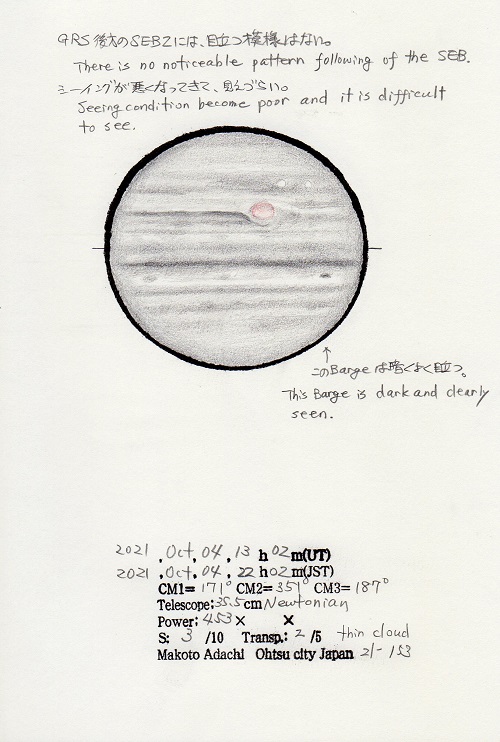 GRS後方のSEBZには、目立つ模様はない。
There is no noticeable pattern following of the SEB.
シーイングが悪くなってきて、見えづらい。
Seeing condition become poor and it is difficult
to see.
このBargeは暗くよく目立つ。
This Barge is dark and clearly
seen.
2021 , Oct, 04 , 13 h 02 m(UT)
2021 , Oct, 04 , 22 h 02 m(JST)
CM1= 171° CM2= 351° CM3= 187°
Telescope; 35.5 cm Newtonian
Power; 453 × ×
S: 3 /10 Transp.: 2 /5 thin cloud
Makoto Adachi Ohtsu city Japan 21-153